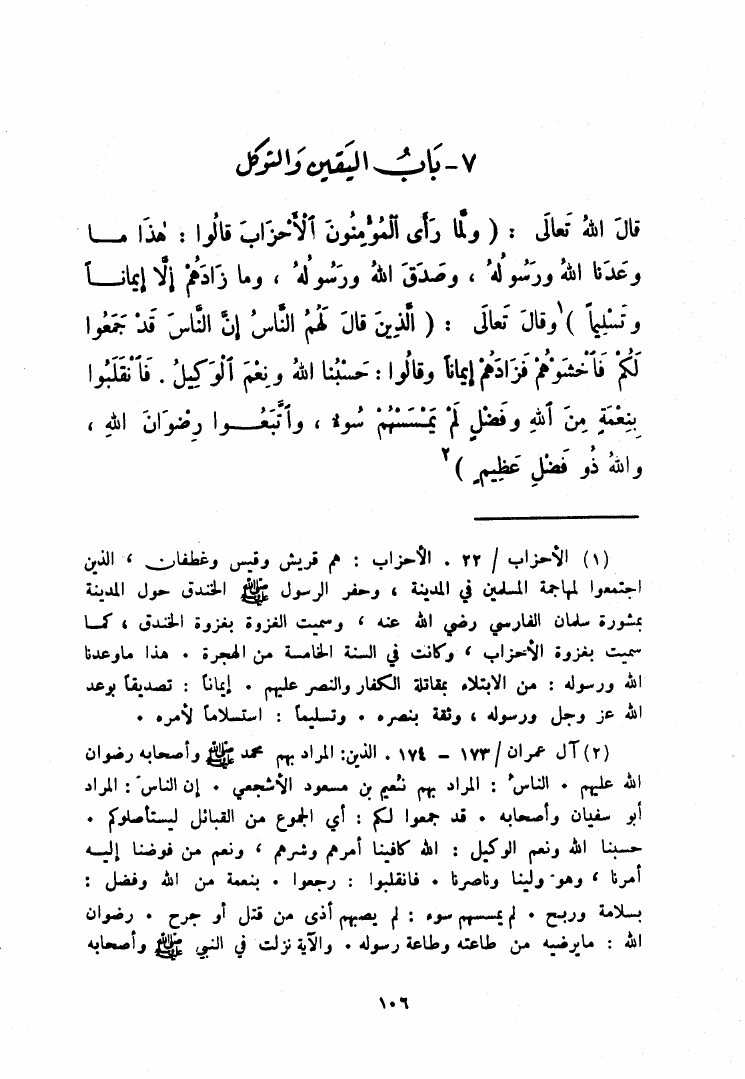 ٧ - بَابُ اليَقين وَالتوكل
قالَ اللهُ تَعالَى : ( ولَمَّا رَأَى ٱلمُؤْمِنُونَ ٱلْأَحْزَابَ قالُوا : هٰذَا مـــا
وعَدَنا اللهُ ورَسُولُهُ ، وصَدَقَ اللهُ ورَسُولُهُ ، وما زادَهُمْ إلَّا إيمانـــاً
وتَسْلِيماً )١ وقالَ تَعالَى : ( الَّذِينَ قالَ لَهُمُ النَّاسُ إنَّ النَّاسَ قَدْ جَمَعُوا
لَكُمْ فَٱخْشَوْهُمْ فَزادَهُمْ إيماناً وقالُوا : حَسْبُنا اللهُ ونِعْمَ ٱلْوَكِيلُ . فَٱنْقَلَبُوا
بِنِعْمَةٍ مِنَ ٱللهِ وفَضْلٍ لَمْ يَمْسَسْهُمْ سُوءٌ ، وٱتَّبَعُـــوا رِضْوَانَ اللهِ ،
واللهُ ذُو فَضْلٍ عَظِيمٍ )٢
(١) الأحزاب / ٢٢ . الأحزاب : هم قريش وقيس وغطفان ، الذين
اجتمعوا لمهاجمة المسلمين في المدينة ، وحفر الرسول ﷺ الخندق حول المدينة
بمشورة سلمان الفارسي رضي الله عنه ، وسميت الغزوة بغزوة الخندق ، كمـا
سميت بغزوة الأحزاب ، وكانت في السنة الخامسة من الهجرة . هذا ماوعدنا
الله ورسوله : من الابتلاء بمقاتلة الكفار والنصر عليهم . إيماناً : تصديقاً بوعد
الله عز وجل ورسوله ، وثقة بنصره . وتسليماً : استسلاماً لأمره .
(٢) آل عمران / ١٧٣ - ١٧٤ . الذين : المراد بهم محمد ﷺ وأصحابه رضوان
الله عليهم . الناسُ : المراد بهم نعيم بن مسعود الأشجعي . إن الناسَ : المراد
أبو سفيان وأصحابه . قد جمعوا لكم : أي الجموع من القبائل ليستأصلوكم .
حسبنا الله ونعم الوكيل : الله كافينا أمرهم وشرهم ، ونعم من فوضنا إليـه
أمرنا ، وهو ولينا وناصرنا . فانقلبوا : رجعوا . بنعمة من الله وفضل :
بسلامة وربح . لم يمسسهم سوء : لم يصبهم أذى من قتل أو جرح . رضوان
الله : مايرضيه من طاعته وطاعة رسوله . والآية نزلت في النبي ﷺ وأصحابه
١٠٦